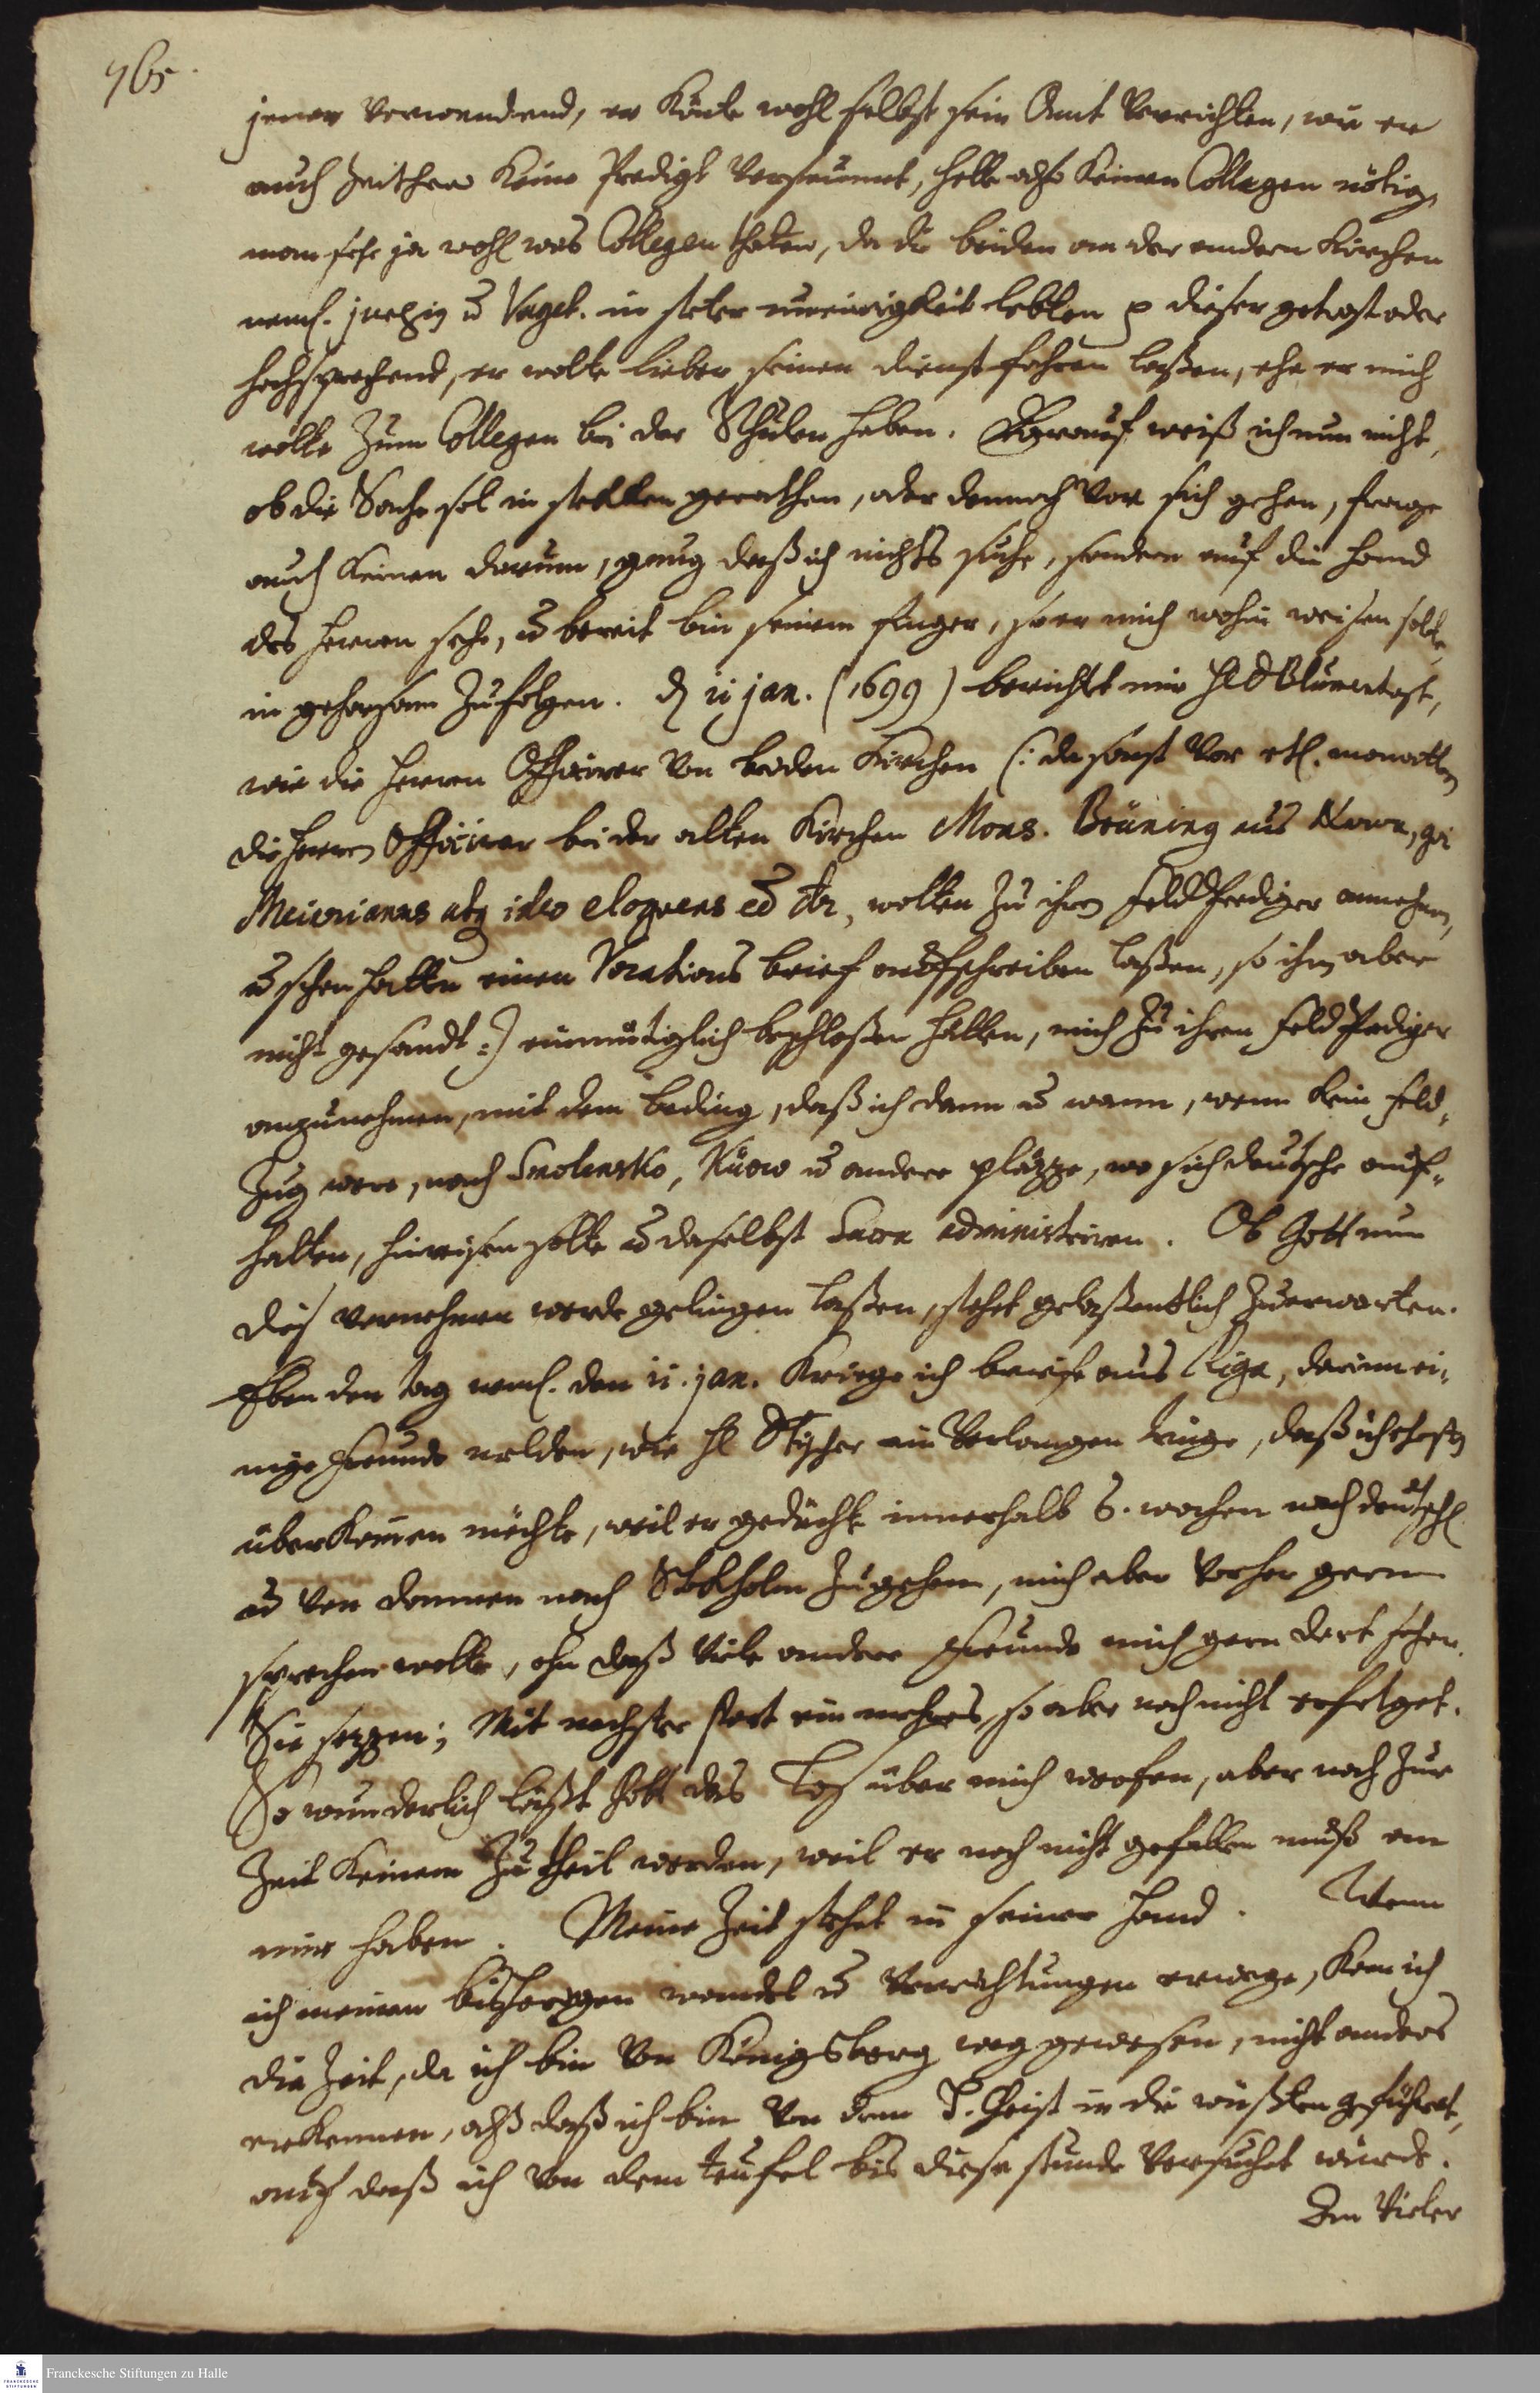 965.
jener verwendend, er könte wohl selbst sein Amt verrichten, wie er
auch zeither keine Predigt versäumt, hette also keinen Collegen nötig,
man sehe ja wohl was Collegen thäten, da die beiden an der andern Kirchen
neml. Juelzig u Vaget. in steter uneinigkeit lebten p dieser getrost oder
hochsprechend, er wolte lieber seinen dienst fahren laßen, ehe er mich
wolte zum Collegen bei der Schulen haben. Worauf weiß ich nun nicht,
ob die Sache sol in stekken gerathen, oder dennoch vor sich gehen, frage
auch keinen darum, genug daß ich nichts suche, sondern auf die Hand
des Herren sehe, u bereit bin seinem finger, so er mich wohin weisen solte,
in gehorsam zufolgen. d 11 jan. (1699) berichtet mir H D Blumentrost,
wie die Herren Officirer von beiden Kirchen (: da sonst vor etl. monatten
die Herren Officirer bei der alten Kirchen Mons. Brüning aus Narva,
Meierianus atq ideo eloquens, wolten zu ihren feldPrediger annehmen,
u schon hatten einen Vocations brief aufschreiben laßen, so ihm aber
nicht gesandt :) einmütiglich beschloßen hätten, mich zu ihren feldPrediger
anzunehmen, mit dem beding, daß ich dann u wann, wenn kein feld-
zug were, nach Smolensko, Kiow u andere pläzze, wo sich deutsche auf-
halten, hinreisen solte u daselbst Sacra administriren. Ob Gott nun
dis vernehmen werde gelingen laßen, stehet gelaßentlich zuerwarten.
Eben den tag neml. den 11. jan. kriege ich briefe aus Riga, darinn ei-
nige freunde melden, wie H Fischer ein verlangen trüge, daß ich ehestes
überkommen möchte, weil er gedächte innerhalb 6. wochen nach deutschl
u von dannen nach Stokholm zugehen, mich aber vorher gern
sprechen wolte, ohn daß viele andere Freunde mich gern dort sehen.
Sie sezzen; Mit nechster post ein mehres, so aber noch nicht erfolget.
So wunderlich läßt Gott das Loß über mich werfen, aber noch zur
Zeit keinem zu theil werden, weil er noch nicht gefallen muß an
mir haben. Meine Zeit stehet in seiner Hand. Wenn
ich meinen bisherigen wandel u Verrichtungen erwege, kan ich
die Zeit, da ich bin von Königsberg weg gewesen, nicht anders
erkennen, alß daß ich bin von dem H. Geist in die wüsten geführet,
auf daß ich von dem teufel bis diese stunde versuchet würde.
An vieler
Franckesche Stiftungen zu Halle